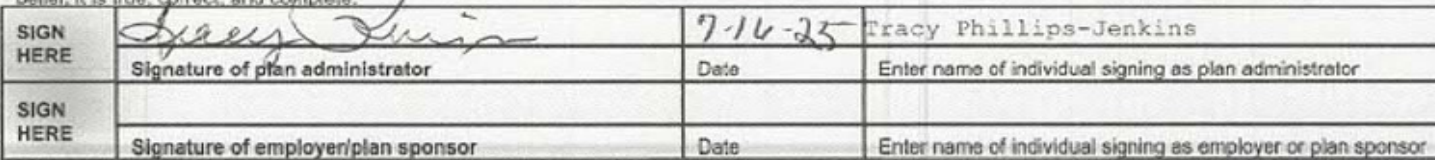 Belief, it is true, correct, and complete.
SIGN HERE
Tracy Jenkins
7-16-25
Tracy Phillips-Jenkins
Signature of plan administrator
Date
Enter name of individual signing as plan administrator
SIGN HERE
Signature of employer/plan sponsor
Date
Enter name of individual signing as employer or plan sponsor